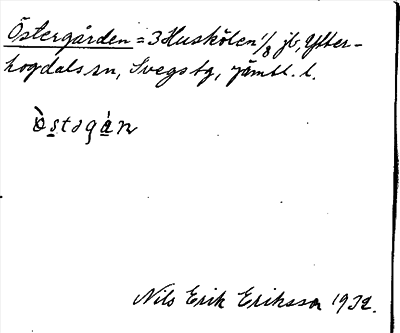 Östergården = 3 Huskölen 1/8 jb, Ytter-
hogdals sn, Svegs tg, Jämtl. l.
ò̀stagàn
Nils Erik Eriksson 1932.